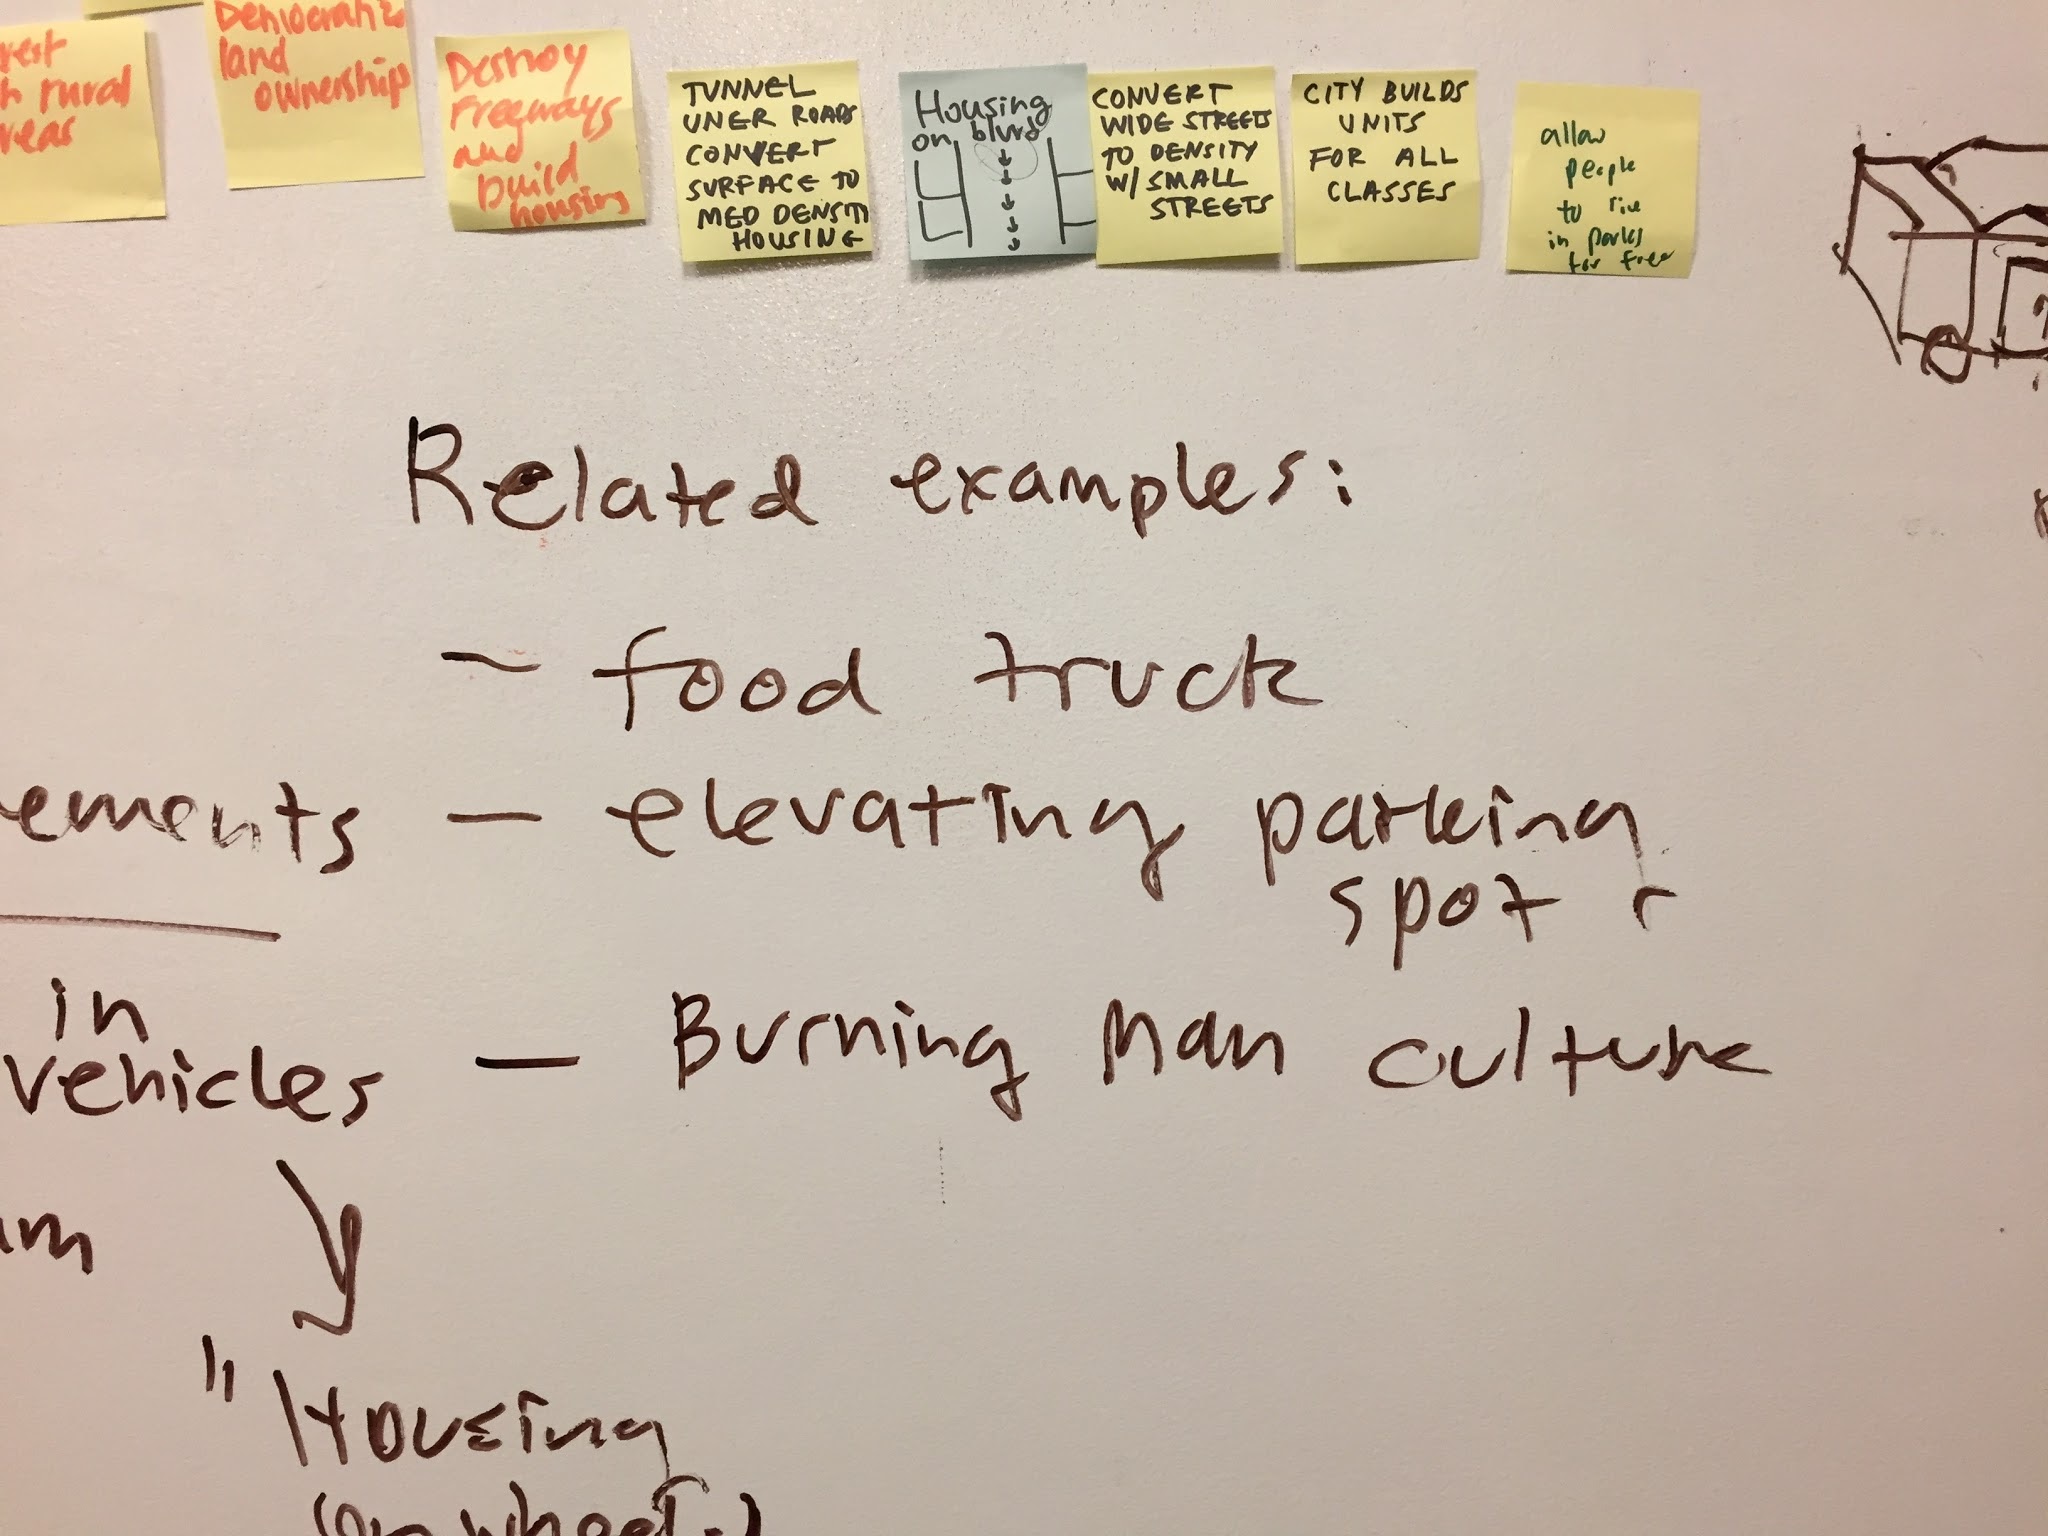 rest
rural
reas
Democratiz
land
ownerships
Destroy
Freeways
and
build
housing
TUNNEL
UNER ROADS
CONVERT
SURFACE TO
MED DENSITY
HOUSING
Housing
on blvds
CONVERT
WIDE STREETS
TO DENSITY
W/ SMALL
STREETS
CITY BUILDS
UNITS
FOR ALL
CLASSES
allow
people
to live
in parks
for free
Related examples:
- food truck
ements
- elevating parking
spot
in
vehicles
- Burning Man culture
um
"Housing
(on wheels)